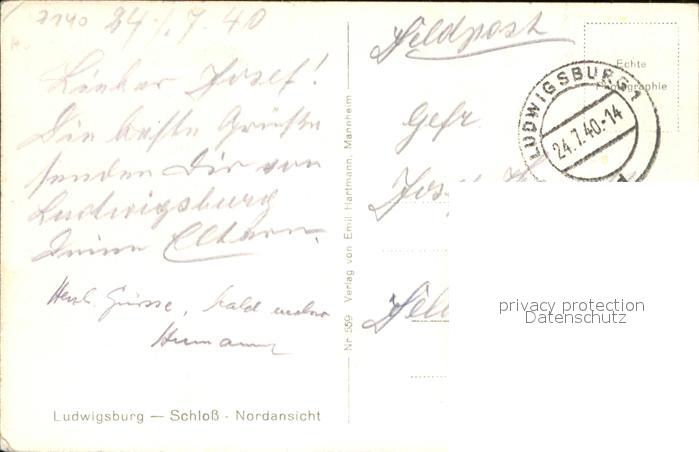 7140 24./.7.40
Lieber Josef!
Die besten Grüße
senden Dir von
Ludwigsburg
Deine Eltern.
Herzl. Grüsse, bald mehr
Hermann
Ludwigsburg — Schloß - Nordansicht
Nr. 559 Verlag von Emil Hartmann, Mannheim
Feldpost
Echte
Photographie
LUDWIGSBURG 1
24.7.40.-14
Gefr.
Josef
privacy protection
Datenschutz